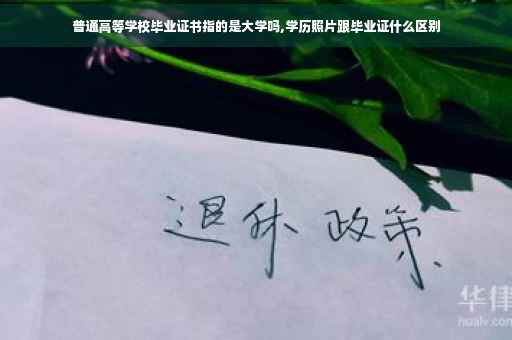 普通高等学校毕业证书指的是大学吗,学历照片跟毕业证什么区别
退休 政策
华律
hualv.com